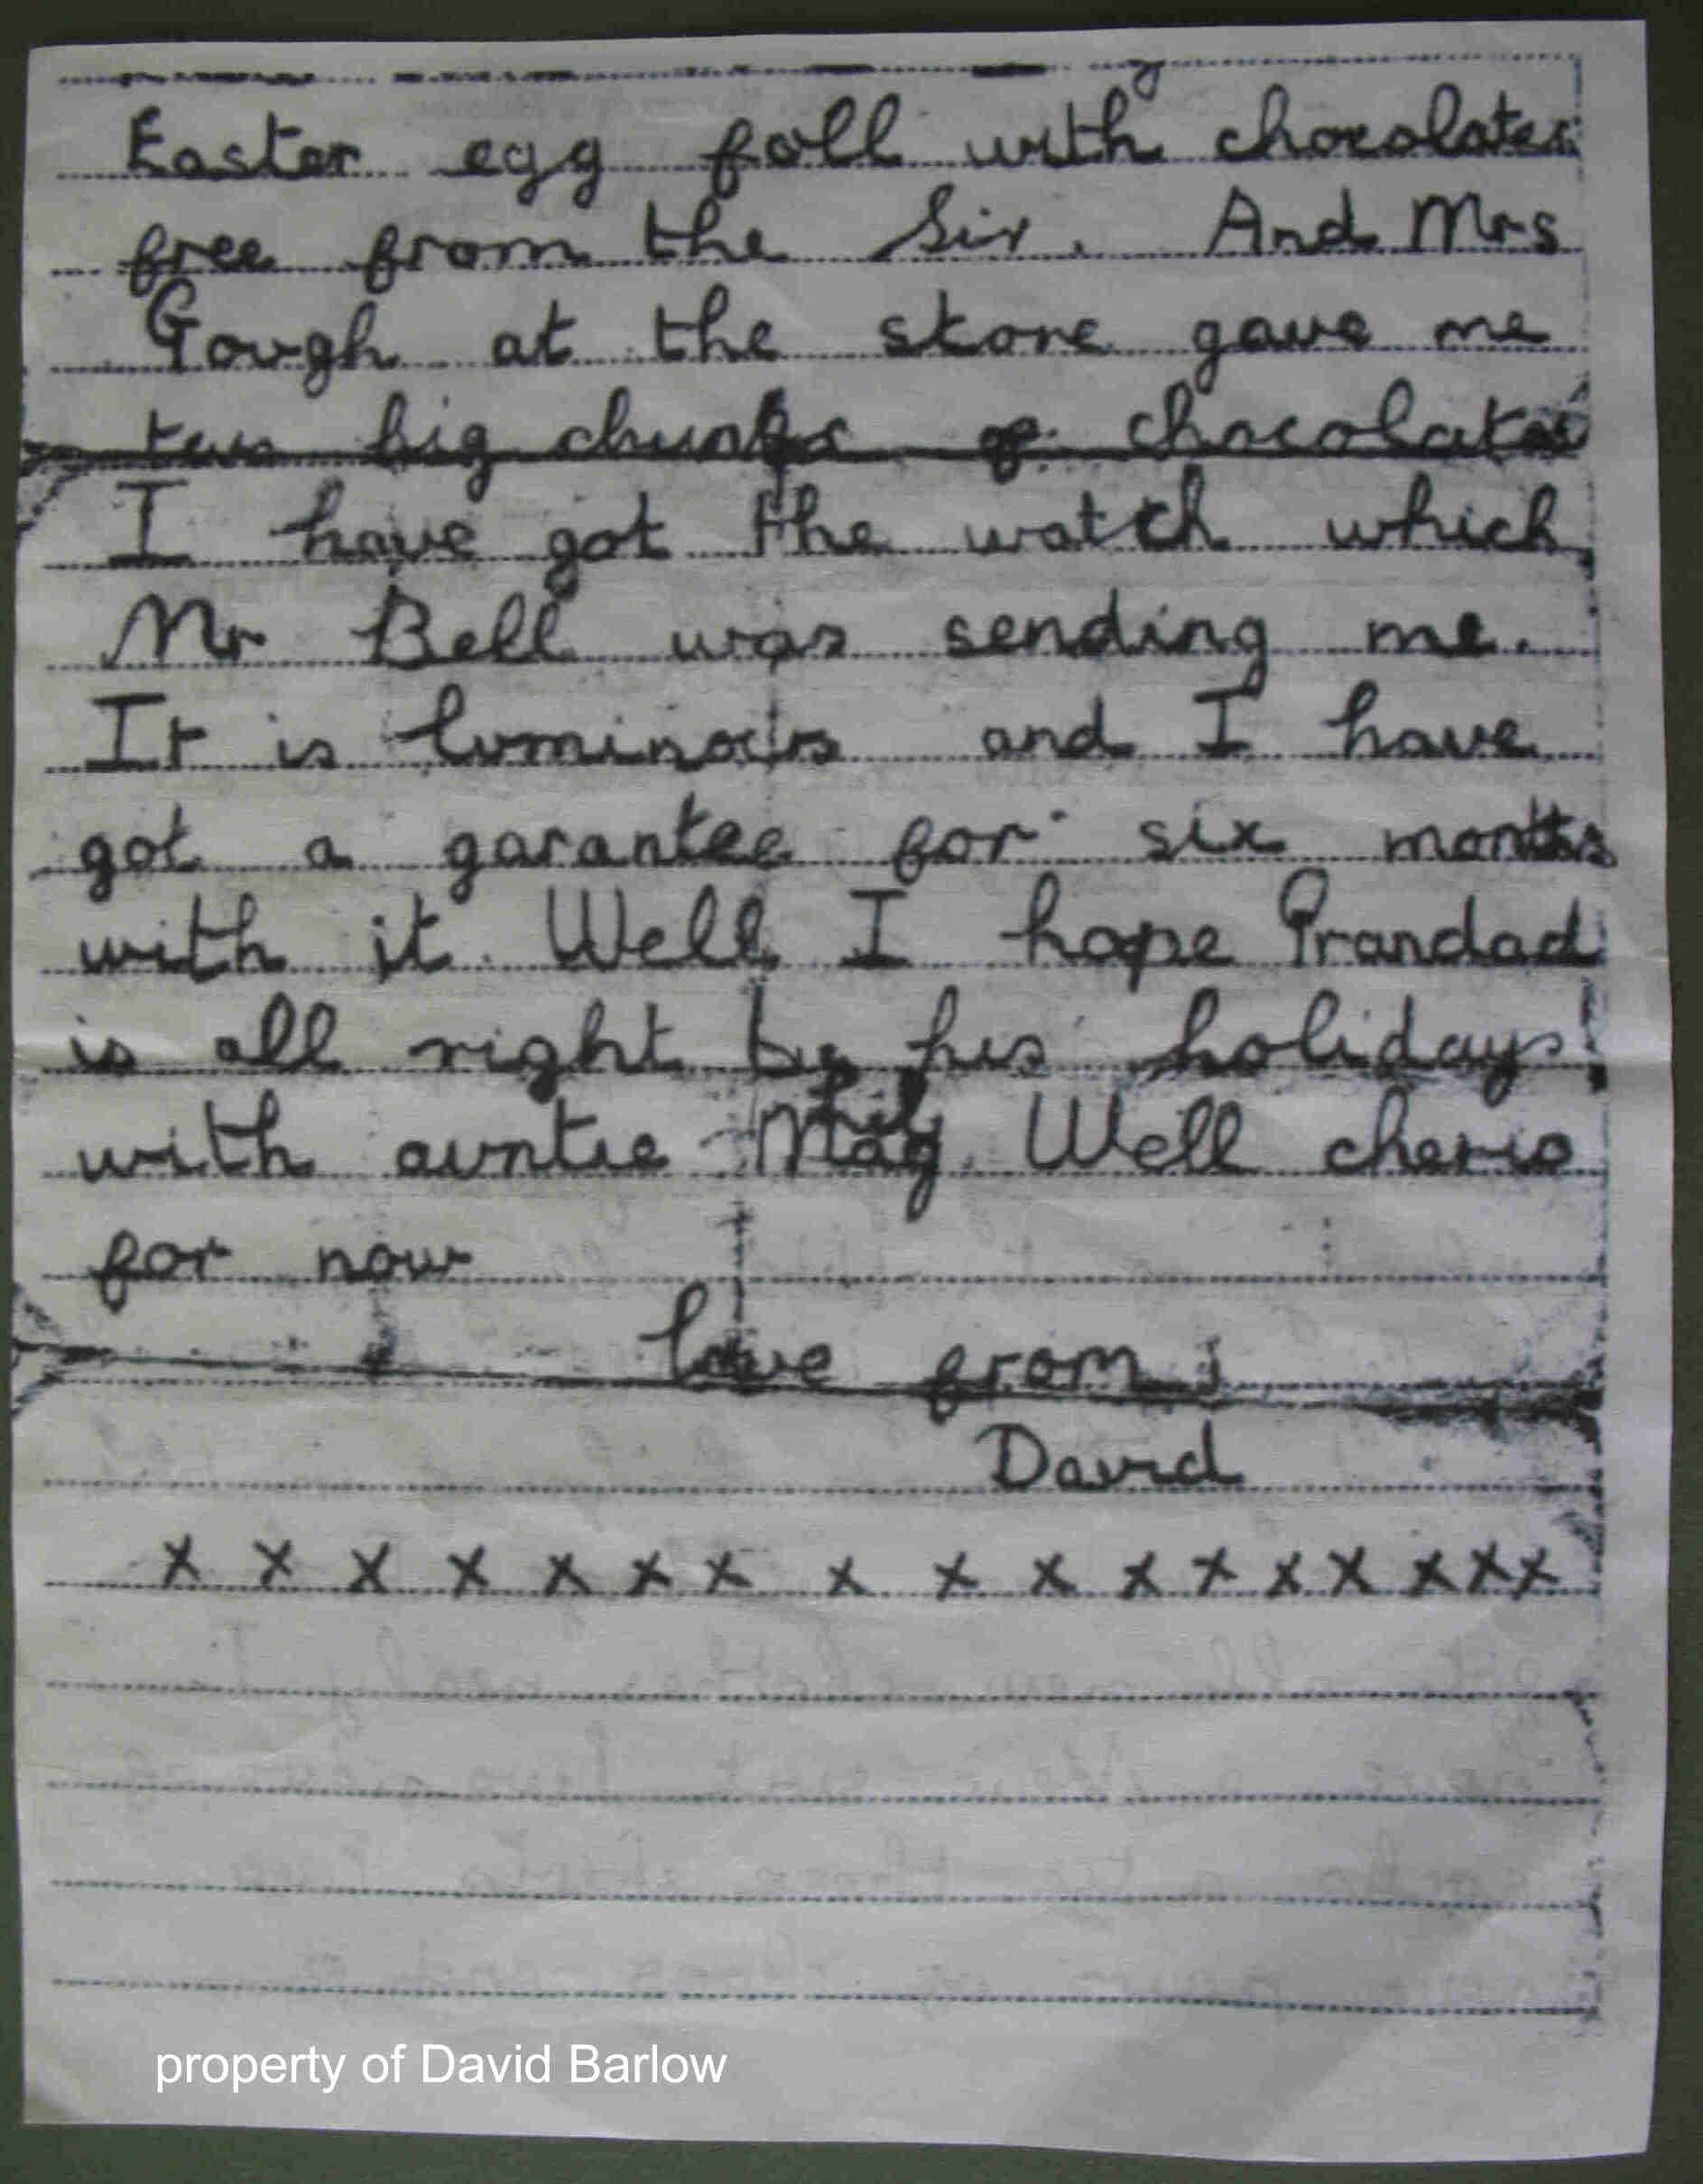 Easter egg foll with chocolates
free from the Sir. And Mrs
Gough at the store gave me
two big chunks of chocolate
I have got the watch which
Mr Bell was sending me.
It is luminous and I have
got a garantee for six months
with it. Well I hope Grandad
is all right by his holidays
with auntie Well cherio
for now
love from
David
x x x x x x x x x x x x x x x x x
property of David Barlow